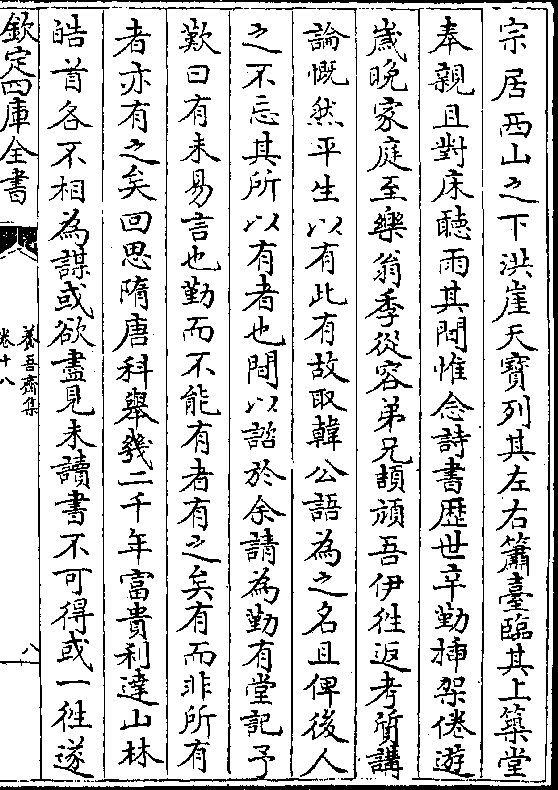 宗居西山之下洪崖天寶列其左右簫臺臨其上築堂
奉親且對床聽雨其間惟念詩書歴世辛勤揷架倦遊
嵗晩家庭至樂翁季從容弟兄頡頏吾伊徃返考質講
論慨然平生以有此有故取韓公語為之名且俾後人
之不忘其所以有者也間以諮於余請為勤有堂記予
歎曰有未易言也勤而不能有者有之矣有而非所有
者亦有之矣回思隋唐科舉幾二千年富貴利達山林
皓首各不相為謀或欲盡見未讀書不可得或一徃遂
欽定四庫全書
養吾齋集
卷十八
八